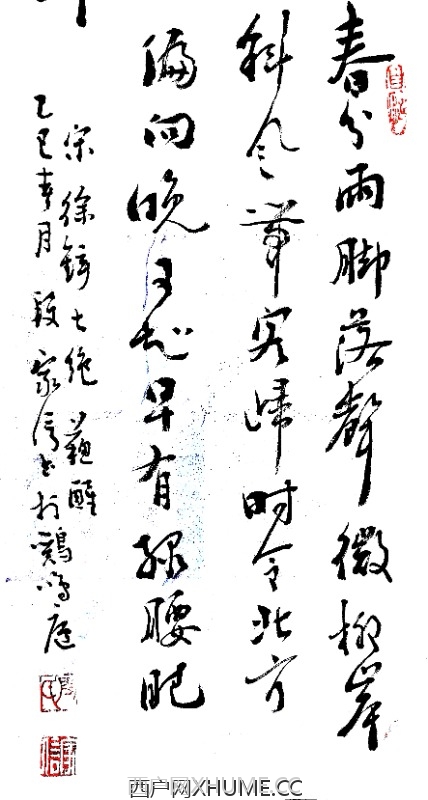 春分雨脚落聲微柳岸
斜风帶客归时令北方
偏向晚可知早有绿腰肥
宋徐铉七绝蘇醒
乙巳春月段家信书於鷄鸣庭
西户网XHUME.CC